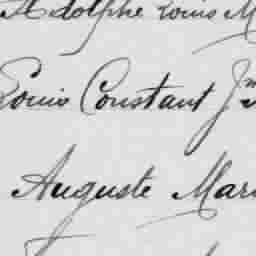 Adolphe Louis M
Louis Constant Jm
Auguste Mar